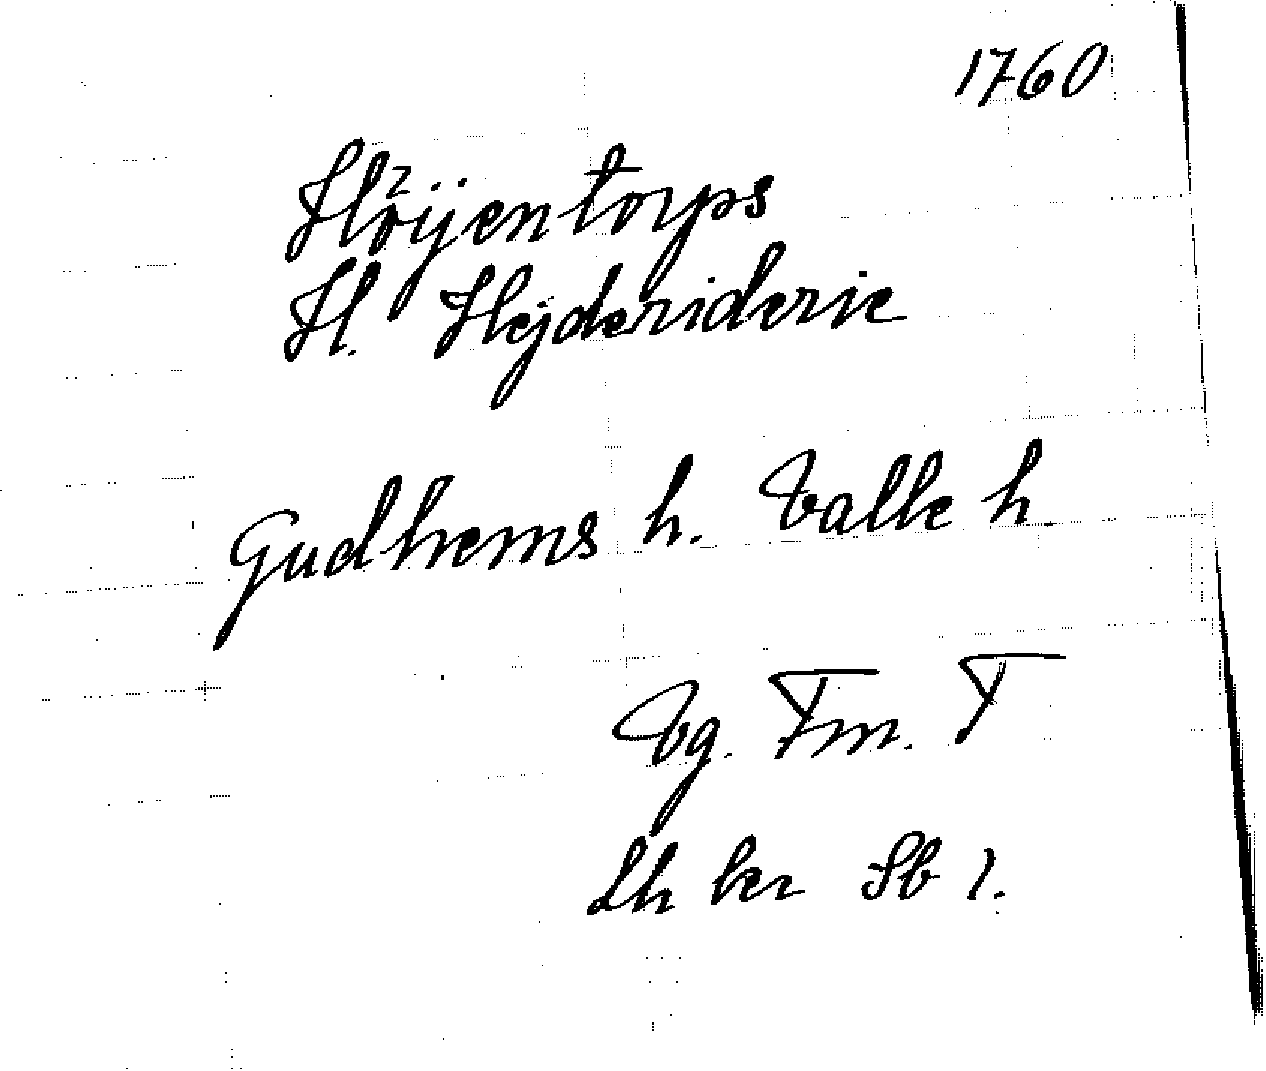 1760
Höijentorps
H. Hejderiderie
Gudhems h. Valle h.
Vg. Fm. T
Lh ber Sb 1.